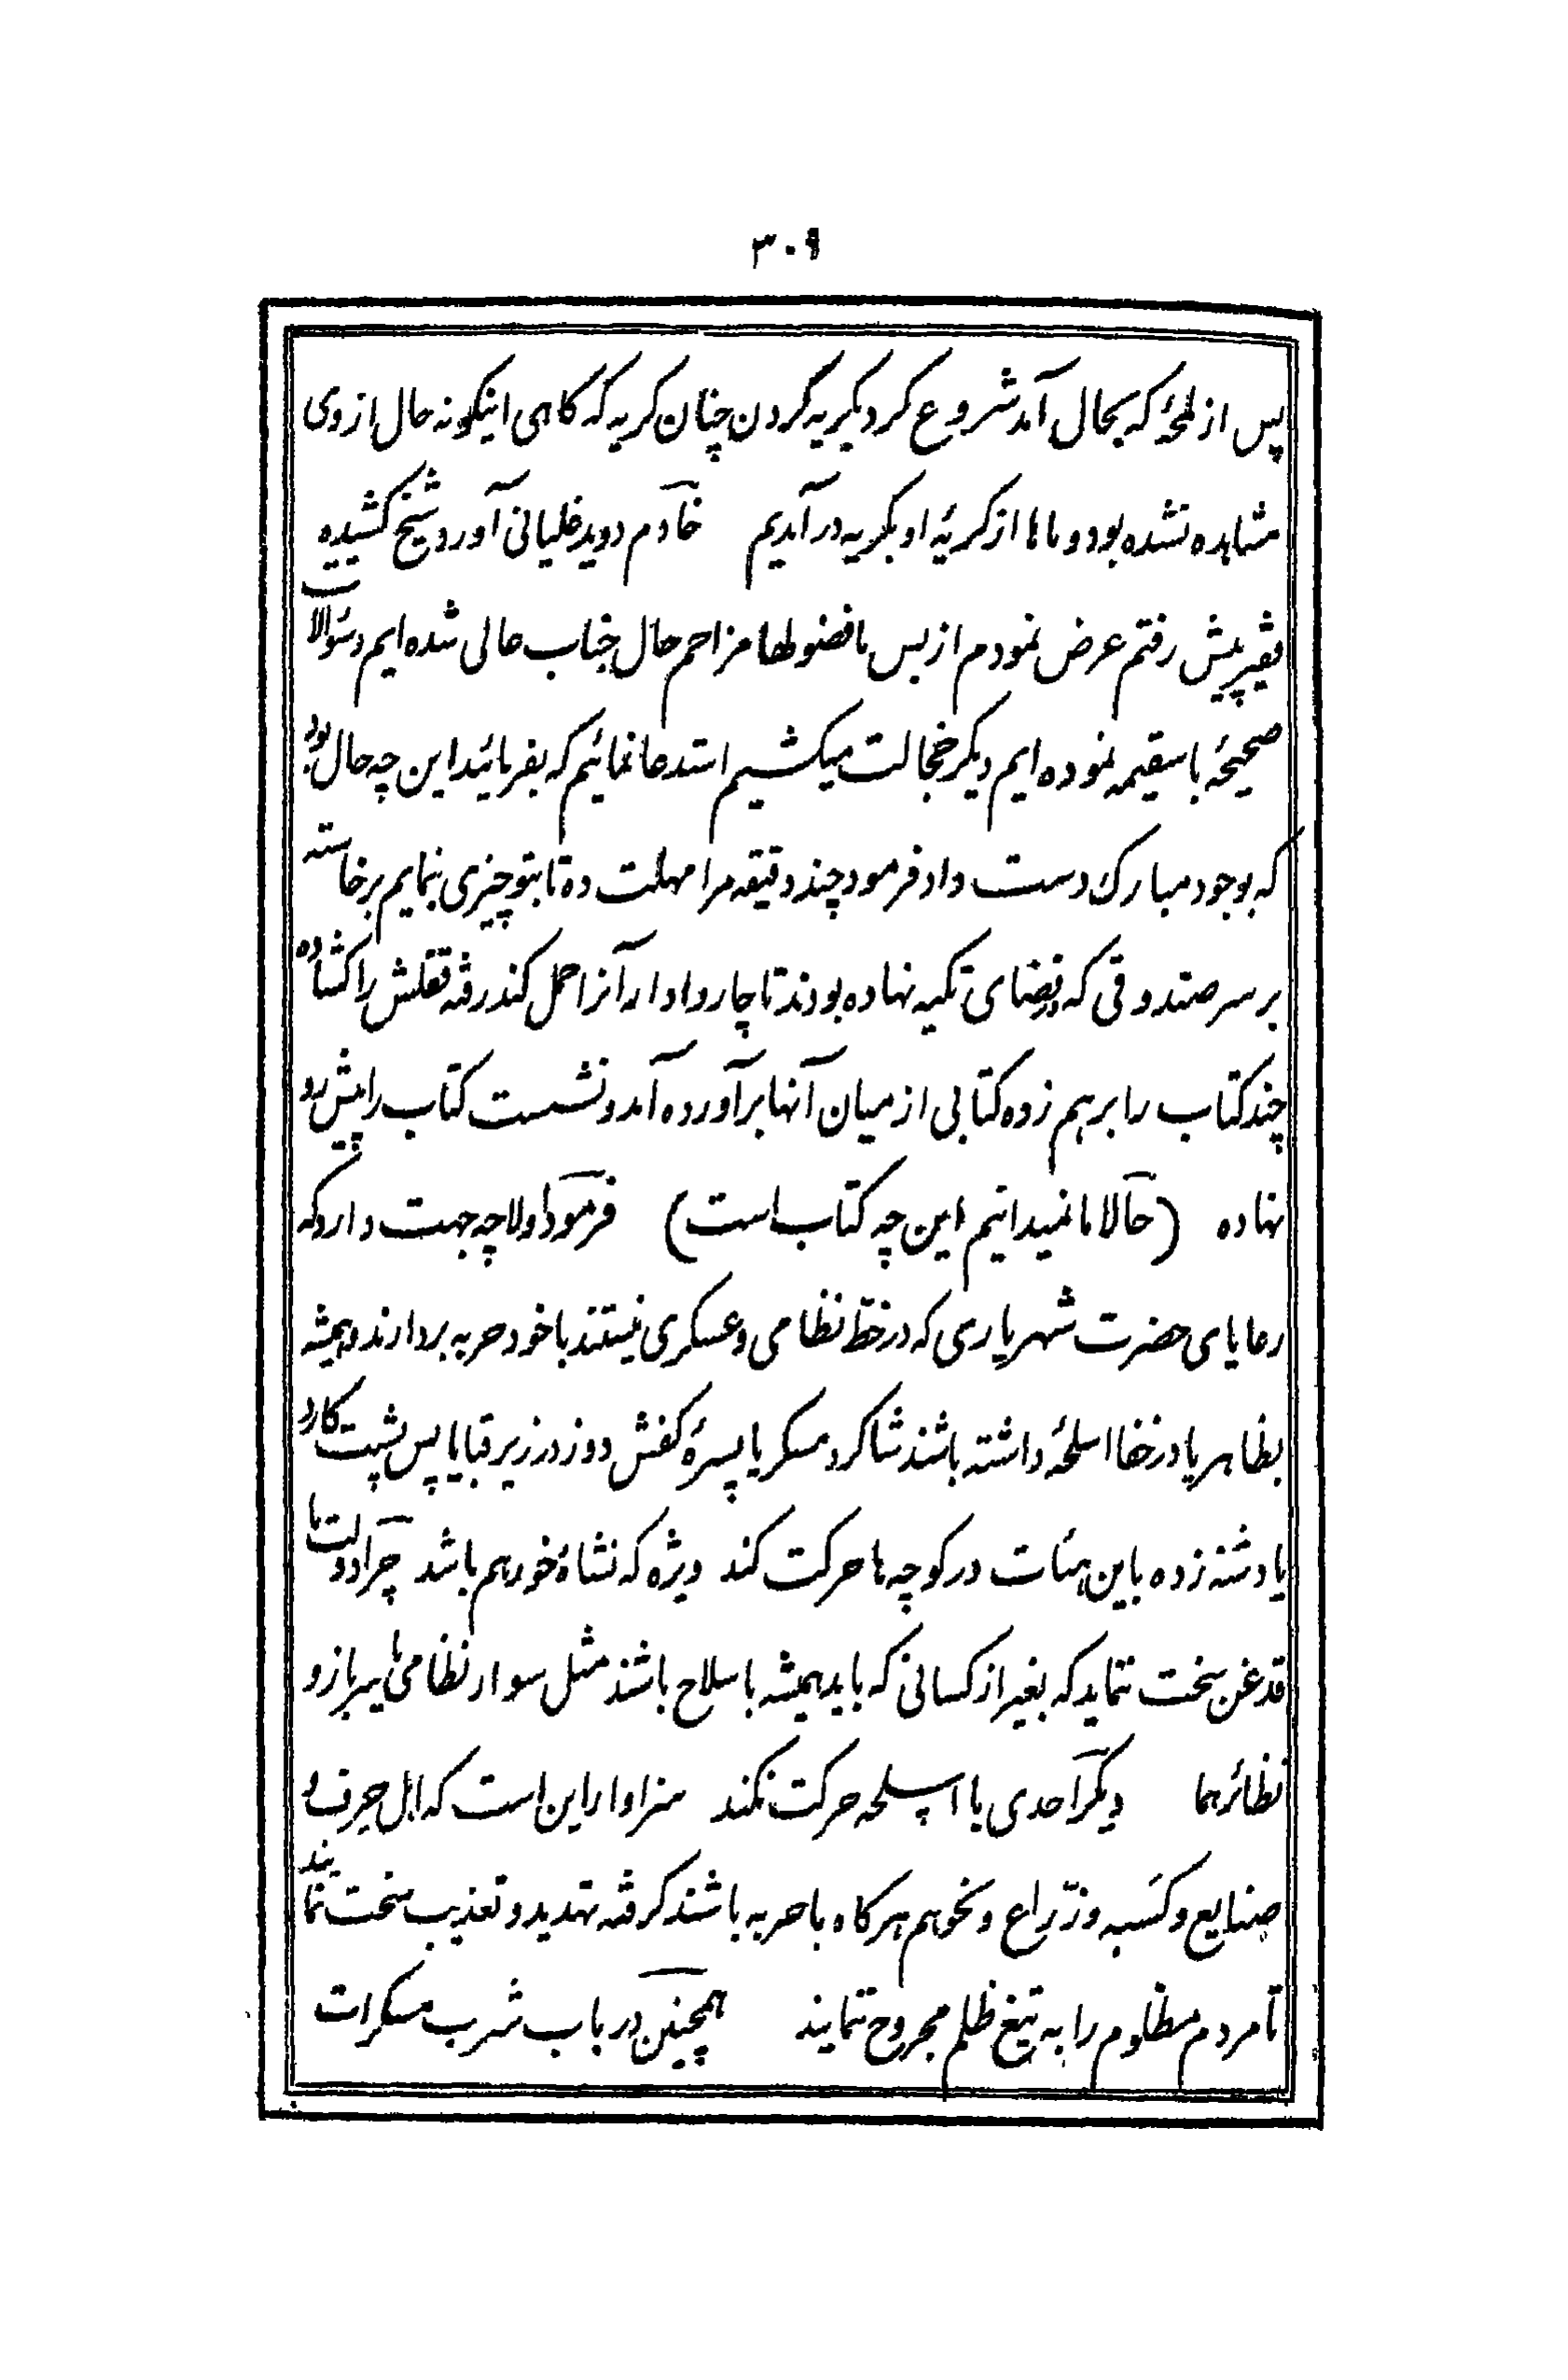 ۳۰۹
پس از لمحۀ که بحال آمد شروع کرد بگریه کردن چنان گریه که کاهی اینکونه حال از وی
مشاهده نشده بود و ماها از کریۀ او بکریه در آمدیم خادم دوید غلیانی آورد شیخ کشیده
فقیر پیش رفتم عرض نمودم از بس ما فضولها مزاحم حال جناب عالی شده ایم و سؤالات
صحیحۀ یا سقیمه نموده ایم دیکر خجالت میکشیم استدعا نمائیم که بفرمائید این چه حال بود
که بوجود مبارک دست داد فرمود چند دقیقه مرا مهلت ده تا بتو چیزی بنمایم برخاسته
بر سر صندوقی که در فضای تکیه نهاده بودند تا چاروادار آنرا حمل کند رفته قفلش را کشاده
چند کتاب را برهم زده کتابی از میان آنها برآورده آمد و نشست کتاب را پیش رو
نهاده (حالا ما نمیدانیم این چه کتاب است) فرمود اولا چه جهت دارد که
رعایای حضرت شهریاری که در خط نظامی و عسکری نیستند با خود حربه بردارند و همیشه
بظاهر یا در خفا اسلحۀ داشته باشند شاکرد مسکر یا پسرۀ کفش دوز در زیر قبا یا پس پشت کارد
یا دشنه زده باین هیئات در کوچه ها حرکت کند ویژه که نشاۀ خور هم باشد چرا دولت ما
قدغن سخت ننماید که بغیر از کسانی که باید همیشه با سلاح باشند مثل سوار نظامی یا سرباز و
نظائرهما دیکر احدی با اسلحه حرکت نکند سزاوار این است که اهل حرف و
صنایع و کسبه و زرّاع و نحوهم هرکاه با حربه باشند کرفته تهدید و تعذیب سخت نمایند
تا مردم مظلوم را به تیغ ظلم مجروح ننمایند همچنین در باب شرب مسکرات